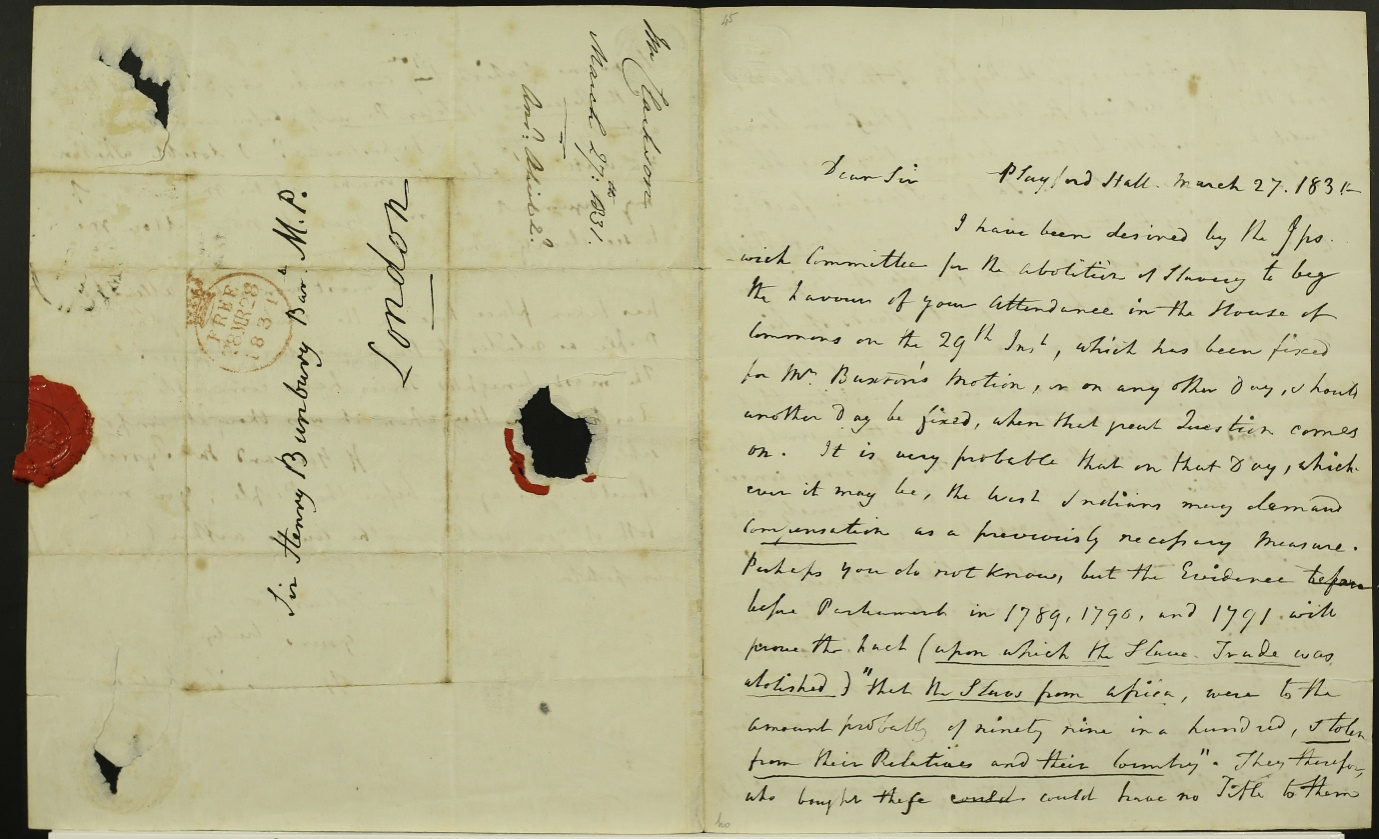 Mr Clarkson
March 27th 1831.
Ansd. 
Sir Henry Bunbury Bart. M.P.
London
FREE
28 MR 28
1831
45
Dear Sir Playford Hall. March 27. 1831
I have been desired by the Ips-
wich Committee for the abolition of Slavery to beg
the favour of your attendance in the House of
Commons on the 29th Inst, which has been fixed
for Mr. Buxton's Motion, or on any other Day, should
another Day be fixed, when that great Question comes
on. It is very probable that on that Day, which-
ever it may be, the West Indians may demand
compensation as a previously necessary Measure.
Perhaps you do not know, but the Evidence before
before Parliament in 1789, 1790, and 1791 will
prove the fact (upon which the Slave Trade was
abolished) "that the Slaves from Africa, were to the
amount probably of ninety nine in a hundred, stolen
from their Relatives and their Country". They therefore,
who bought these could could have no Title to them